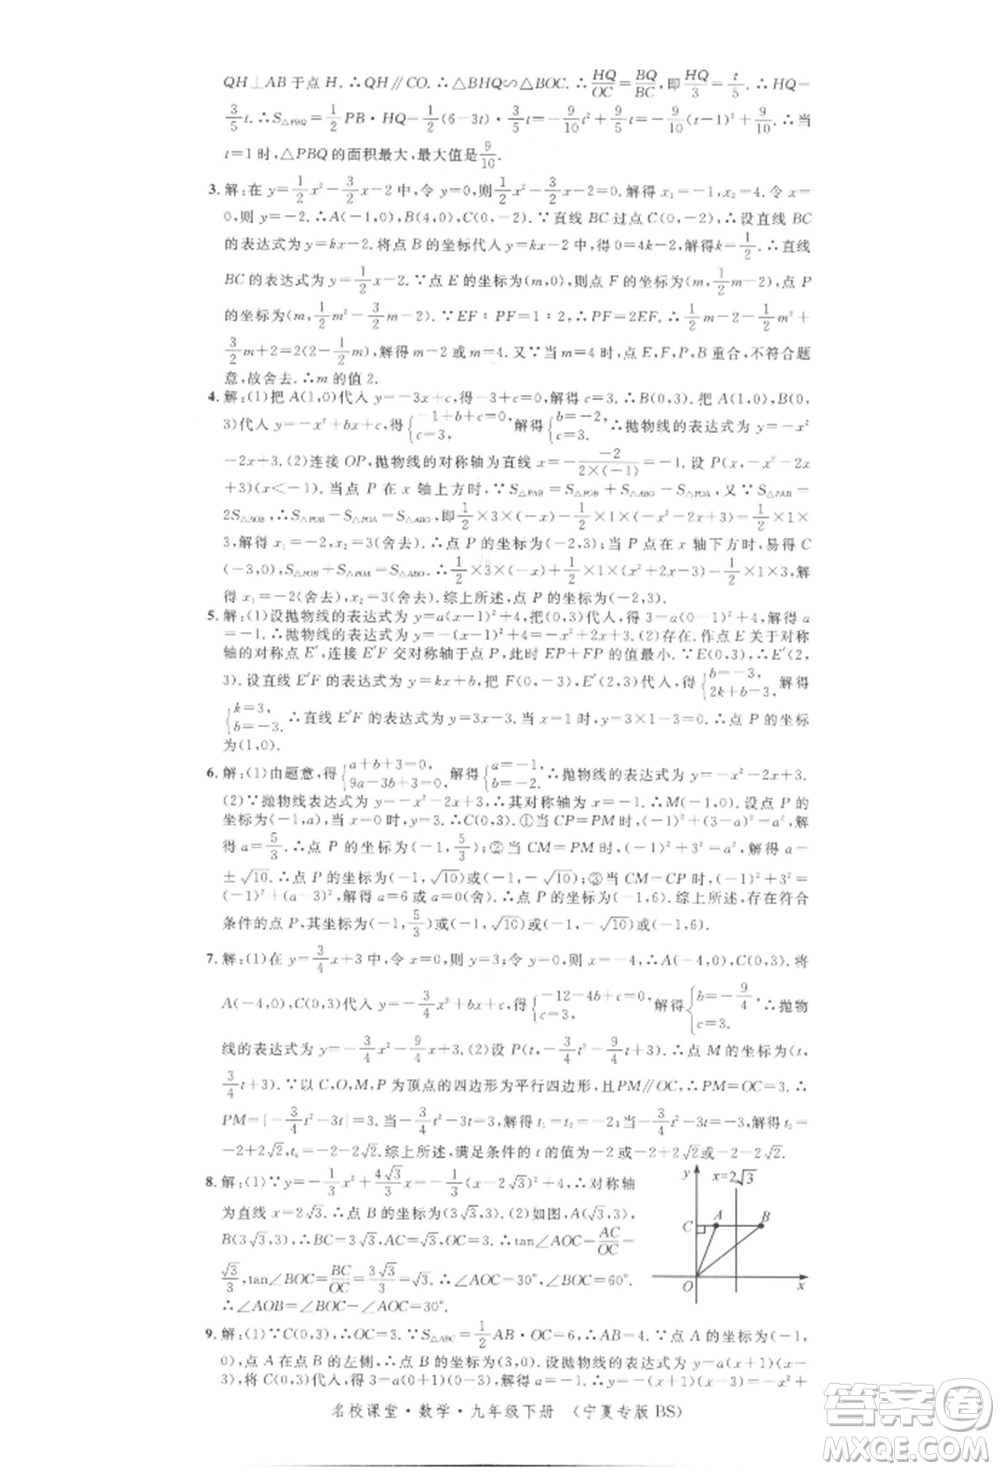 QH⊥AB于点 H.∴QH∥CO.∴△BHQ∽△BOC.∴HQ/OC=BQ/BC,即HQ/3=t/5.∴HQ=
3/5t.∴S△PBQ=1/2PB·HQ=1/2(6-3t)·3/5t=-9/10t²+9/5t=-9/10(t-1)²+9/10.∴当
t=1时,△PBQ的面积最大,最大值是9/10.
3.解:在 y=1/2x²-3/2x-2中,令 y=0,则1/2x²-3/2x-2=0.解得 x₁=-1,x₂=4.令 x=
0,则y=-2.∴A(-1,0),B(4,0),C(0,-2).∵直线 BC 过点C(0,-2),∴设直线 BC
的表达式为 y=kx-2.将点 B 的坐标代入 y=kx-2 中,得 0=4k-2,解得k=1/2.∴直线
BC的表达式为 y=1/2x-2.∵点 E 的坐标为(m,0),则点 F 的坐标为(m,1/2m-2),点 P
的坐标为(m,1/2m²-3/2m-2).∵EF∶PF=1∶2,∴PF=2EF.∴1/2m-2-1/2m²+
3/2m+2=2(2-1/2m),解得 m=2 或 m=4.又∵当 m=4 时,点 E,F,P,B 重合,不符合题
意,故舍去.∴m 的值 2.
4.解:(1)把 A(1,0)代入 y=-3x+c,得-3+c=0,解得 c=3.∴B(0,3).把A(1,0),B(0,
3)代入 y=-x²+bx+c,得{-1+b+c=0, c=3, 解得{b=-2, c=3. ∴抛物线的表达式为 y=-x²
-2x+3.(2)连接 OP,抛物线的对称轴为直线 x=-(-2)/(2×(-1))=-1.设 P(x,-x²-2x
+3)(x<-1).当点 P 在 x 轴上方时,∵S△PAB=S△POB+S△ABO-S△POA,又∵S△PAB=
2S△AOB,∴S△POB-S△POA=S△ABO,即1/2×3×(-x)-1/2×1×(-x²-2x+3)=1/2×1×
3,解得 x₁=-2,x₂=3(舍去).∴点 P 的坐标为(-2,3);当点 P 在 x 轴下方时,易得 C
(-3,0),S△POB+S△POA=S△ABO.∴1/2×3×(-x)+1/2×1×(x²+2x-3)=1/2×1×3,解
得 x₁=-2(舍去),x₂=3(舍去).综上所述,点 P 的坐标为(-2,3).
5.解:(1)设抛物线的表达式为 y=a(x-1)²+4,把(0,3)代入,得 3=a(0-1)²+4,解得 a
=-1.∴抛物线的表达式为 y=-(x-1)²+4.(2)存在.作点 E 关于对称
轴的对称点 E′,连接 E′F 交对称轴于点 P,此时 EP+FP 的值最小.∵E(0,3),∴E′(2,
3).设直线 E′F 的表达式为 y=kx+b,把 F(0,-3),E′(2,3)代入,得{b=-3, 2k+b=3, 解得
{k=3, b=-3. ∴直线 E′F 的表达式为 y=3x-3.当 x=1 时,y=3×1-3=0.∴点 P 的坐标
为(1,0).
6.解:(1)由题意,得{a+b+3=0, 9a-3b+3=0, 解得{a=-1, b=-2. ∴抛物线的表达式为y=-x²-2x+3.
(2)∵抛物线的表达式为 y=-x²-2x+3,∴其对称轴为 x=-1.∴M(-1,0).设点 P 的
坐标为(-1,a),当 x=0 时,y=3.∴C(0,3).①当 CP=PM 时,(-1)²+(3-a)²=a²,解
得a=5/3.∴点 P 的坐标为(-1,5/3);②当 CM=PM 时,(-1)²+3²=a²,解得 a=
±√10.∴点 P 的坐标为(-1,√10)或(-1,-√10);③当 CM=CP 时,(-1)²+3²=
(-1)²+(3-a)²,解得 a=6 或 a=0(舍).∴点 P 的坐标为(-1,6).综上所述,存在符合
条件的点 P,其坐标为(-1,5/3)或(-1,√10)或(-1,-√10)或(-1,6).
7.解:(1)在 y=3/4x+3 中,令 x=0,则 y=3;令 y=0,则 x=-4.∴A(-4,0),C(0,3).将
A(-4,0),C(0,3)代入 y=-3/4x²+bx+c,得{-12-4b+c=0, c=3, 解得{b=-9/4, c=3. ∴抛物
线的表达式为 y=-3/4x²-9/4x+3.(2)设 P(t,-3/4t²-9/4t+3).∴点 M 的坐标为(t,
3/4t+3).∵以 C,O,M,P 为顶点的四边形为平行四边形,且PM∥OC,∴PM=OC=3.∴
PM=|-3/4t²-3t|=3.∴当-3/4t²-3t=3,解得t₁=t₂=-2;当-3/4t²-3t=-3,解得 t₃=
-2+2√2,t₄=-2-2√2.综上所述,满足条件的 t 的值为-2 或-2+2√2或-2-2√2.
8.解:(1)∵y=-1/3x²+4√3/3x=-1/3(x-2√3)²+4,∴对称轴
为直线 x=2√3.∴B(3√3,3).(2)如图,A(√3,3),
B(3√3,3),∴AC=√3,BC=3√3,OC=3.∴tan∠AOC=AC/OC=
√3/3,tan∠BOC=BC/OC=3√3/3=√3.∴∠AOC=30°,∠BOC=60°.
∴∠AOB=∠BOC-∠AOC=30°.
y
x=2√3
C
A
B
O
x
9.解:(1)∵C(0,3),∴OC=3.∵S△ABC=1/2AB·OC=6,∴AB=4.∵点 A 的坐标为(-1,
0),点 A 在点 B 的左侧,∴点 B 的坐标为(3,0).设抛物线的表达式为 y=a(x+1)(x-
3),将 C(0,3)代入,得-3a=3,解得 a=-1.∴抛物线的表达式为 y=-(x+1)(x-3)=
名校课堂·数学·九年级下册 (宁夏专版 BS)
答案圈
MXQE.COM